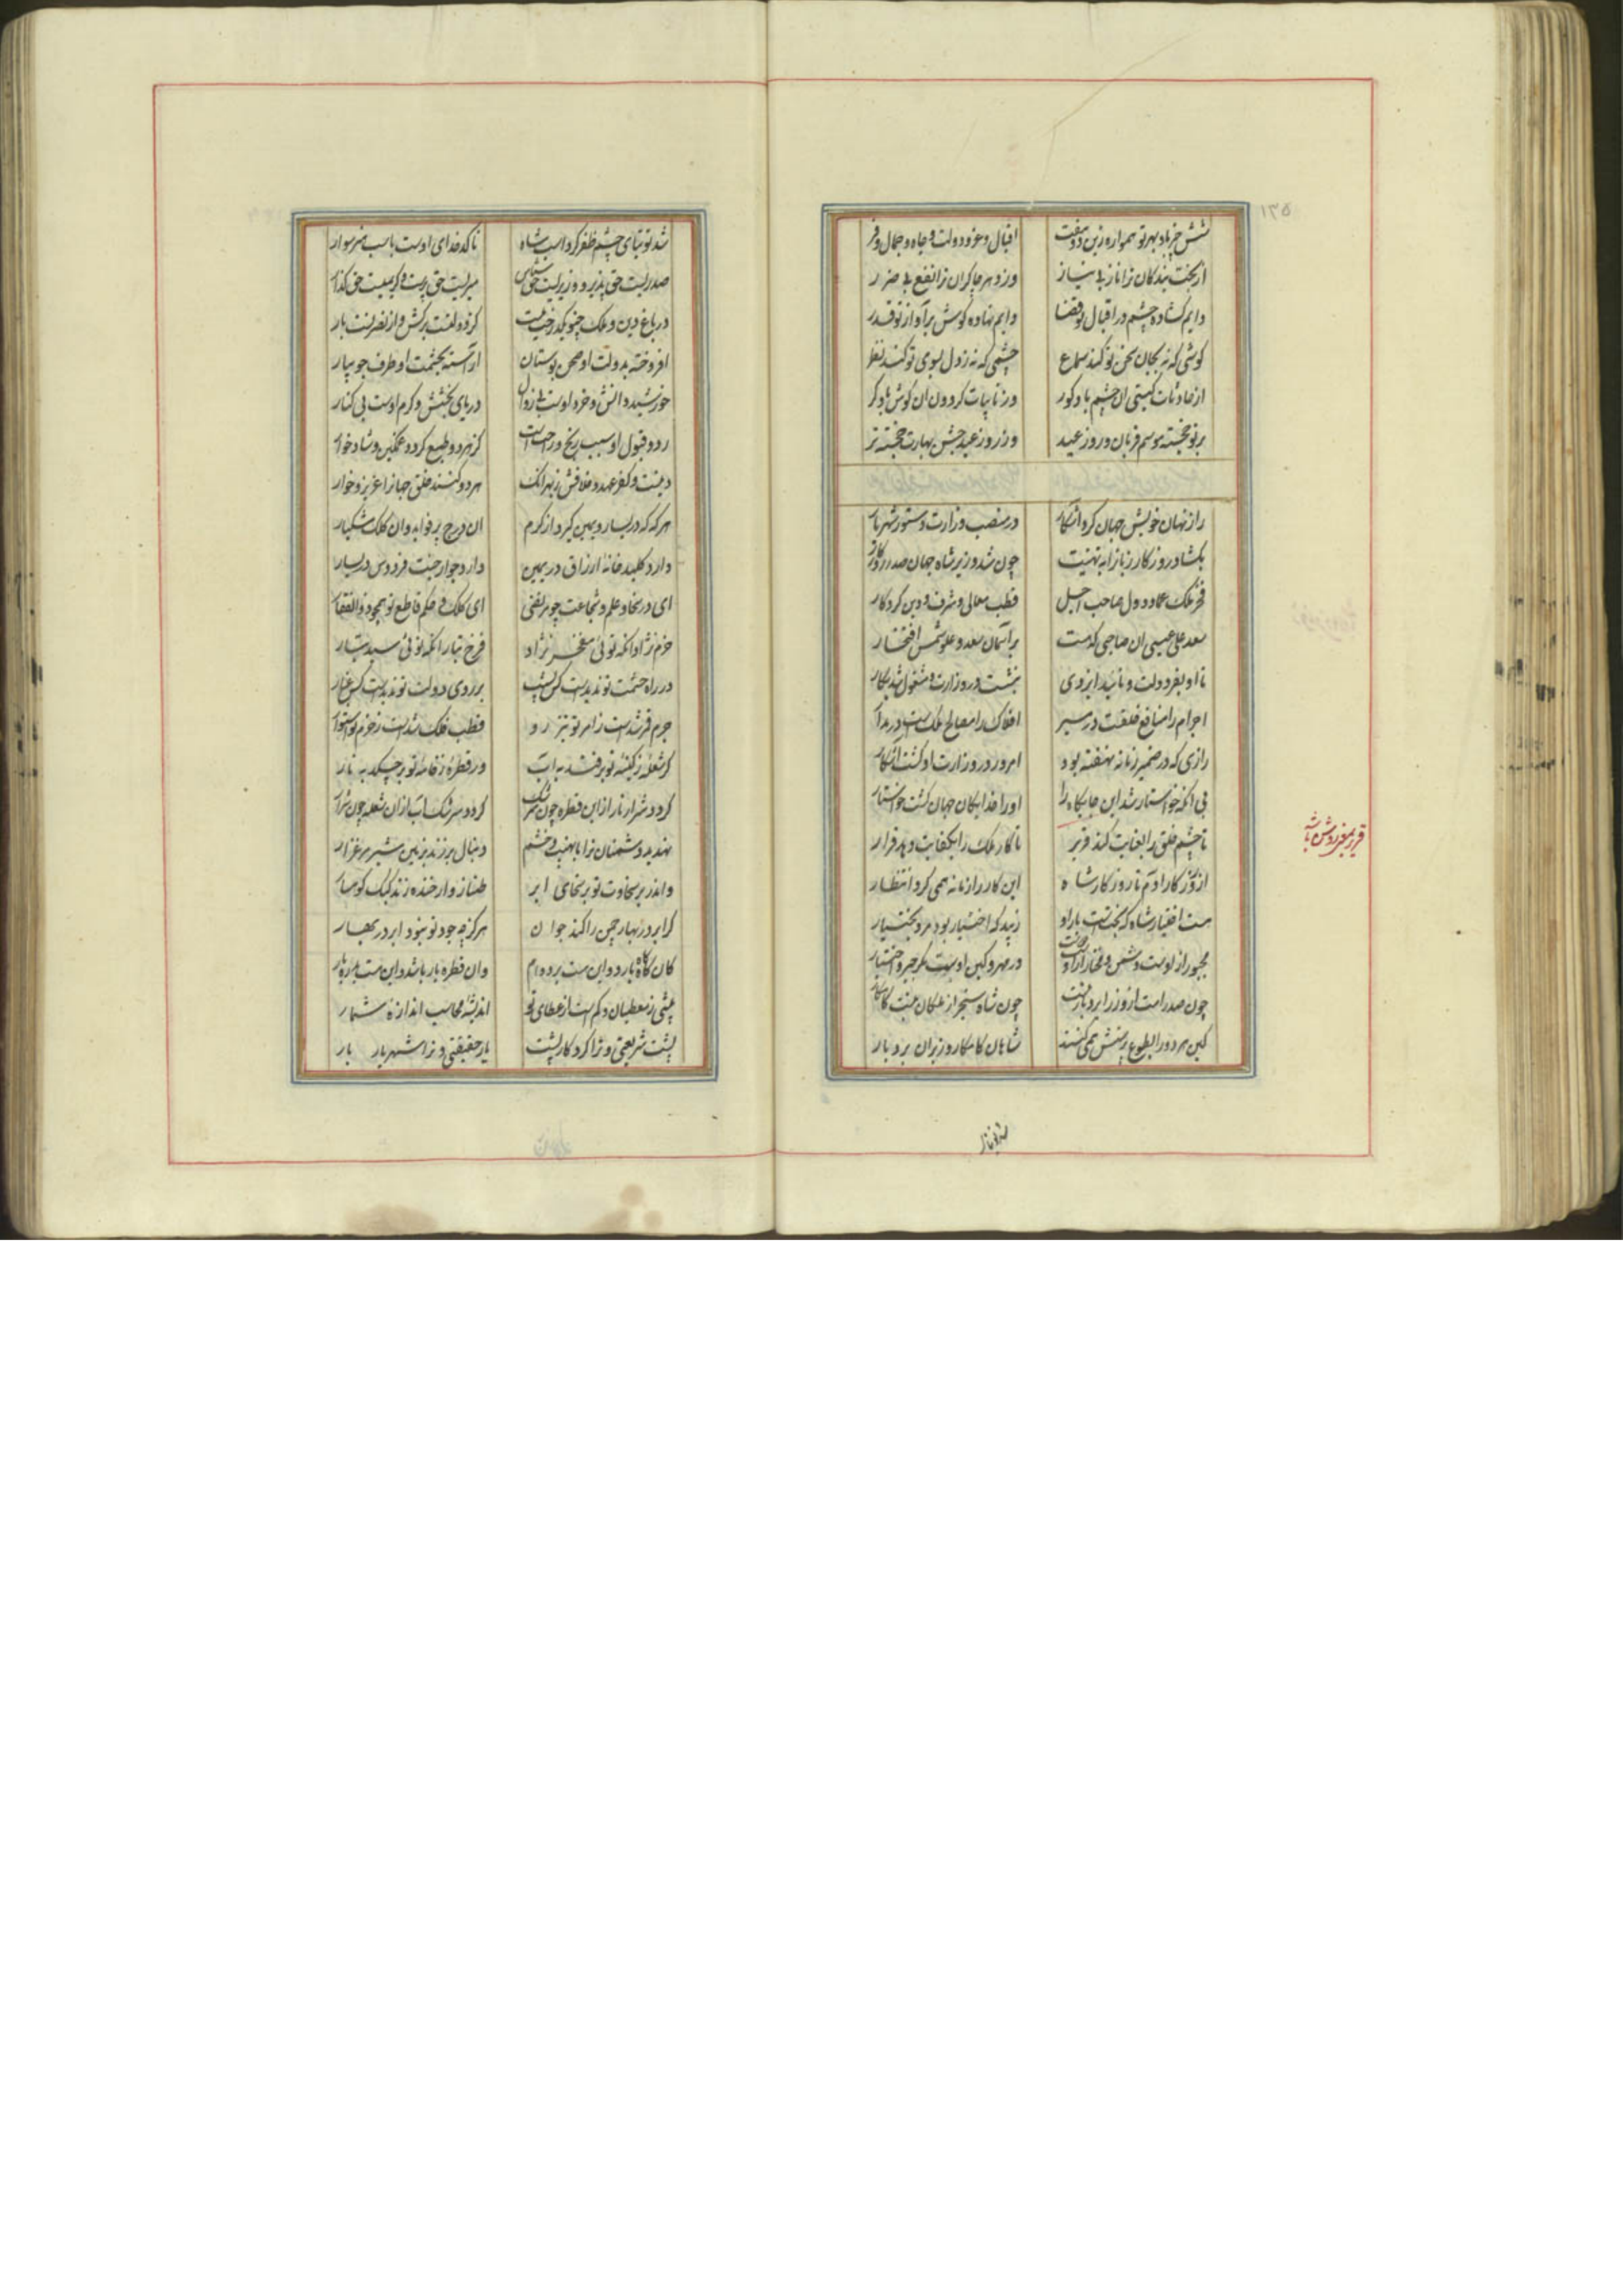 ۱۳۵
شش چیز باد بهر تو همواره زین دو هفت
اقبال و عز و دولت و جاه و جمال و فر
از بخت بندگان ترا ناز بی نیاز
وز دهر چاکران ترا نفع بی ضرر
دایم گشاده چشم در اقبال تو قضا
دایم نهاده گوش بر آواز تو قدر
گوشی که نه بجان سخن تو کند سماع
چشمی که نه ز دل بسوی تو کند نظر
از حادثات گیتی آن چشم باد کور
وز نایبات گردون ان گوش باد کر
بر تو خجسته موسم قربان و روز عید
وز روز عید جشن بهارت خجسته تر
راز نهان خویش جهان کرد آشکار
در منصب وزارت دستور شهریار
بکشاد روزگار زبان را به تهنیت
چون شد وزیر شاه جهان صدر روزگار
فخر ملک عماد دول صاحب اجل
قطب معالی و شرف دین کردگار
سعد علی عیسی ان صاحبی که هست
بر آسمان سعد و علو شمس افتخار
تا او بفر دولت و تایید ایزدی
بنشست در وزارت و مشغول شد بکار
اجرام را منافع خلقست در مسیر
افلاک را مصالح ملکست در مدار
رازی که در ضمیر زمانه نهفته بود
امروز در وزارت او گشت آشکار
بی آنکه خواستار شد این جایگاه را
او را خدایگان جهان گشت خواستار
تا چشم خلق را بعنایت کند قریر
تا کار ملک را بکفایت دهد قرار
قریر یعنی روشن باشد
از روزگار آدم تا روزگار شاه
این کار را زمانه همی کرد انتظار
هست اختیار شاه که بختست یار او
زیبد که اختیار بود مرد بختیار
مجبور از اوست دشمن و مختار از او دوست
در مهر و کین اوست مگر جبر و اختیار
چون صدر امت از وزرا بردبار نیست
چون شاه سنجر از ملکان نیست کامکار
کین هر دو را بطوع پرستش همی کنند
شاهان کامکار و وزیران بردبار
شد توتیای چشم ظفر گرد اسب شاه
تا کدخدای اوست باسب هنر سوار
صدریست حق پذیر و وزیریست حق شناس
میریست حق پرست و کریمیست حق گذار
در باغ دین و ملک چنو یک درخت نیست
کز دولتست برکش و از نصرتست بار
افروخته بدولت او صحن بوستان
آراسته بحشمت او طرف جویبار
خورشید دانش و خرد اوست بی زوال
دریای بخشش و کرم اوست بی کنار
رد و قبول او سبب رنج و راحت است
کز هر دو طبع گردد غمگین و شادخوار
دینست و کفر عهد و خلافش ز بهر آنک
هر دو کنند خلق جهان را عزیز و خوار
هر که که در یسار و یمین گیرد از کرم
ان درج پر فواید و ان کلک مشکبار
دارد کلید خانه ارزاق در یمین
دارد جواز جنت فردوس در یسار
ای در سخا و علم و شجاعت چو مرتضی
ای کلک و حکم قاطع تو همچو ذوالفقار
خرم نژاد آنکه توئی مفخر نژاد
فرخ تبار آنکه توئی سید تبار
در راه حشمت تو ندیدست کس نشیب
بر روی دولت تو ندیدست کس غبار
جرم قمر شدست ز امر تو تیز رو
قطب فلک شدست ز حزم تو استوار
گر شعله ز کینه تو بر فتد به آب
ور قطره ز خامه تو بر چکد به نار
گردد شرار نار از این قطره چون سرشک
گردد سرشک آب از ان شعله چون شرار
تهدید دشمنان ترا با نهیب و خشم
دنبال بر زند بزمین شیر مرغزار
واندر بر سخاوت تو بر سخای ابر
طناز وار خنده زند کبک کوهسار
گر ابر در بهار چمن را کند جوان
هرگز چو جود تو نبود ابر در بهار
کان گاه گاه بارد و این هست بر دوام
وان قطره بار باشد و این هست بدره بار
بیشی ز معطیان و کم است از عطای تو
اندیشه محاسب اندازه شمار
پشت شریعتی و ترا کردگار پشت
یار حقیقتی و ترا شهریار یار